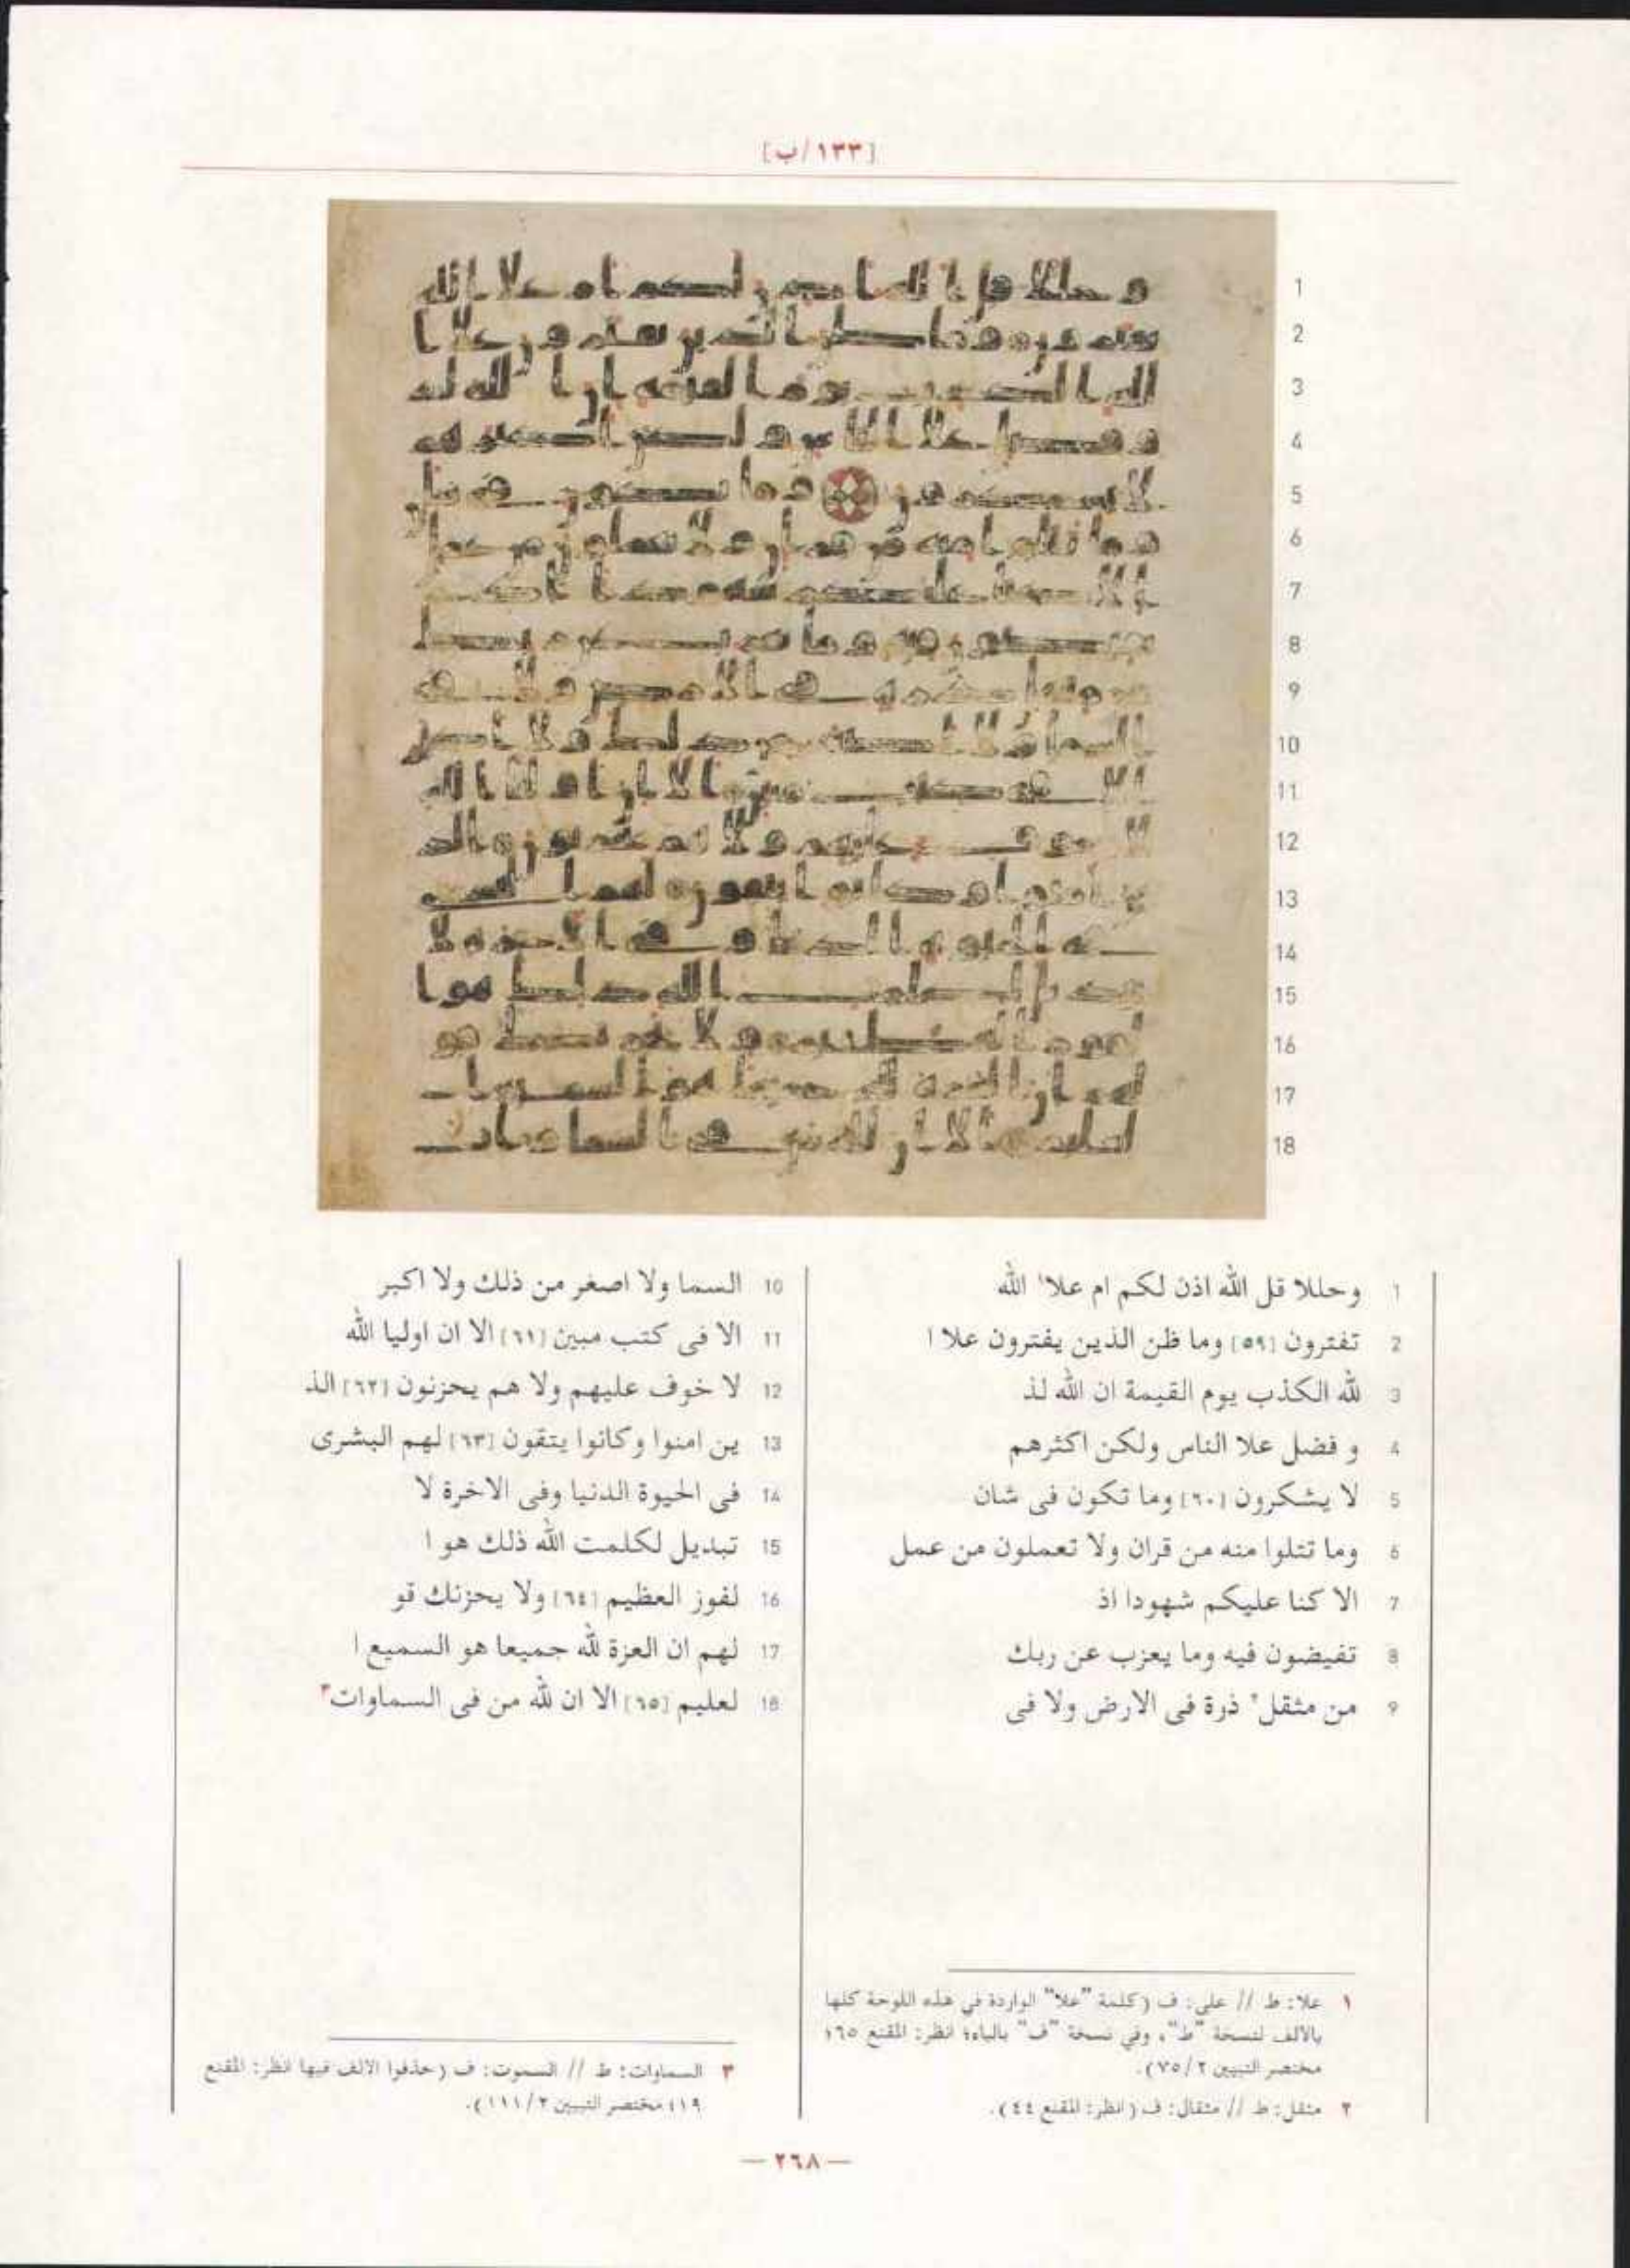 [١٣٣/ب]
1 وحللا قل الله اذن لكم ام علا١ الله
2 تفترون [٥٩] وما ظن الذين يفترون علا ا
3 لله الكذب يوم القيمة ان الله لذ
4 و فضل علا الناس ولكن اكثرهم
5 لا يشكرون [٦٠] وما تكون فى شان
6 وما تتلوا منه من قران ولا تعملون من عمل
7 الا كنا عليكم شهودا اذ
8 تفيضون فيه وما يعزب عن ربك
9 من مثقل٢ ذرة فى الارض ولا فى
10 السما ولا اصغر من ذلك ولا اكبر
11 الا فى كتب مبين [٦١] الا ان اوليا الله
12 لا خوف عليهم ولا هم يحزنون [٦٢] الذ
13 ين امنوا وكانوا يتقون [٦٣] لهم البشرى
14 فى الحيوة الدنيا وفى الاخرة لا
15 تبديل لكلمت الله ذلك هو ا
16 لفوز العظيم [٦٤] ولا يحزنك قو
17 لهم ان العزة لله جميعا هو السميع ا
18 لعليم [٦٥] الا ان لله من فى السماوات٣
١ علا: ط // على: ف (كلمة "علا" الواردة في هذه اللوحة كلها
بالألف لنسخة "ط"، وفي نسخة "ف" بالياء؛ انظر: المقنع ٦٥؛
مختصر التبيين ٢/٧٥).
٢ مثقل: ط // مثقال: ف (انظر: المقنع ٤٤).
٣ السماوات: ط // السموت: ف (حذفوا الالف فيها انظر: المقنع
١٩؛ مختصر التبيين ٢/١١١).
— ٢٦٨ —